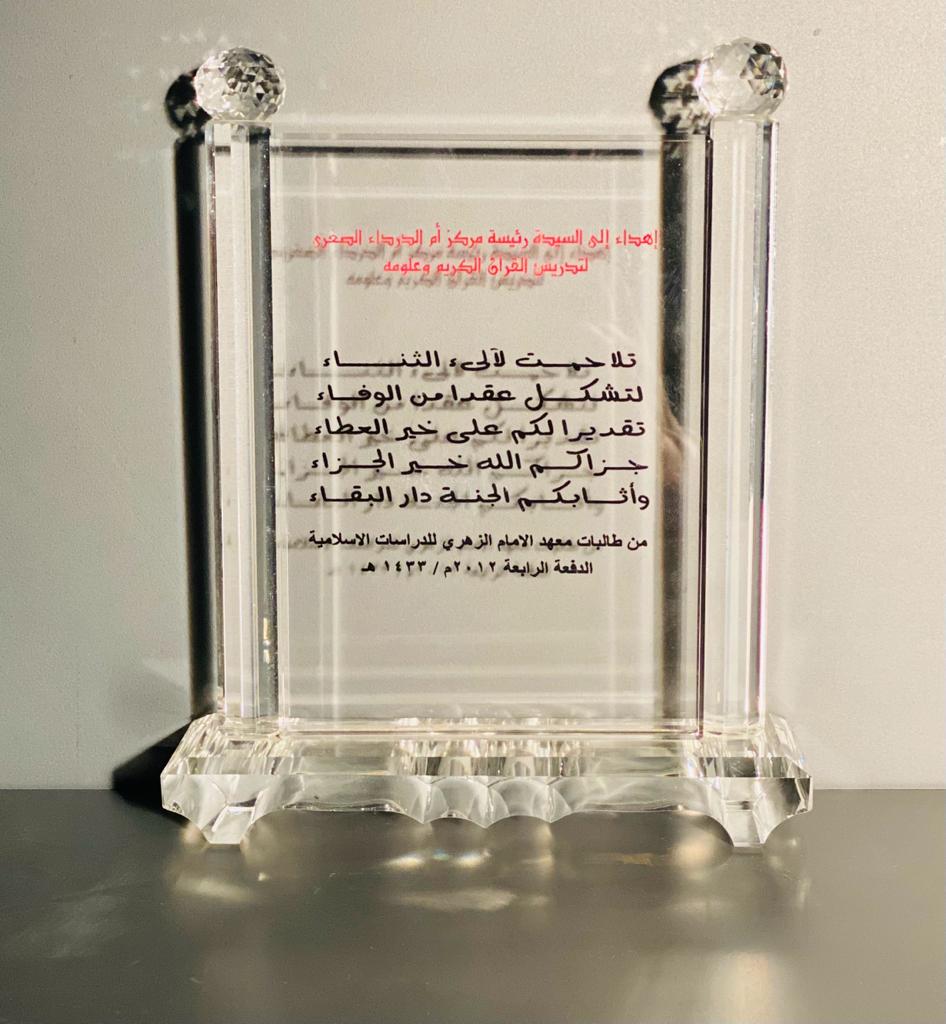 إهداء إلى السيدة رئيسة مركز أم الدرداء الصغرى
لتدريس القرآن الكريم وعلومه
تلاحمت لآلىء الثناء
لتشكل عقدا من الوفاء
تقديرا لكم على خير العطاء
جزاكم الله خير الجزاء
وأثابكم الجنة دار البقاء
من طالبات معهد الامام الزهري للدراسات الاسلامية
الدفعة الرابعة ٢٠١٢م / ١٤٣٣ هـ